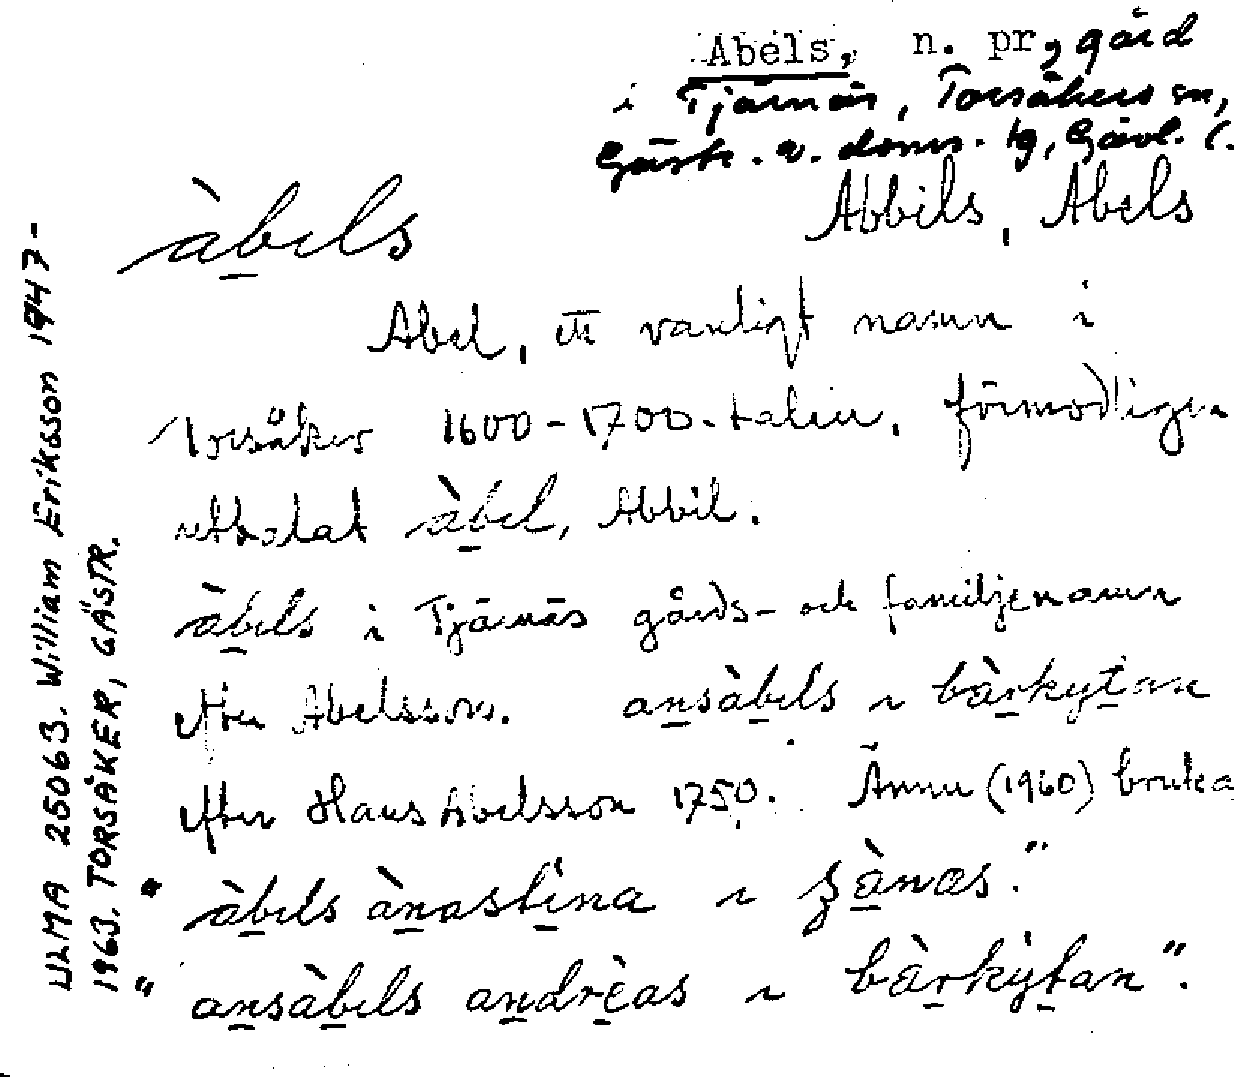 Abels, n. pr., gård
i Tjärnäs, Torsåkers sn,
Gästr. v. doms. tg, Gävl. l.
Abbils, Abels
àbels
Abel, ett vanligt namn i
Torsåker 1600-1700-talen, förmodligen
uttalat àbel, Abbil.
àbels i Tjärnäs gårds- och familjenamn
efter Abelsson. ansàbels i bàrkytan
efter Hans Abelsson 1750. Ännu (1960) brukas
"àbels ànastina i
"ansàbels andrèas i bàrkỳtan".
ULMA 25063. William Eriksson 1947-
1963. TORSÅKER, GÄSTR.